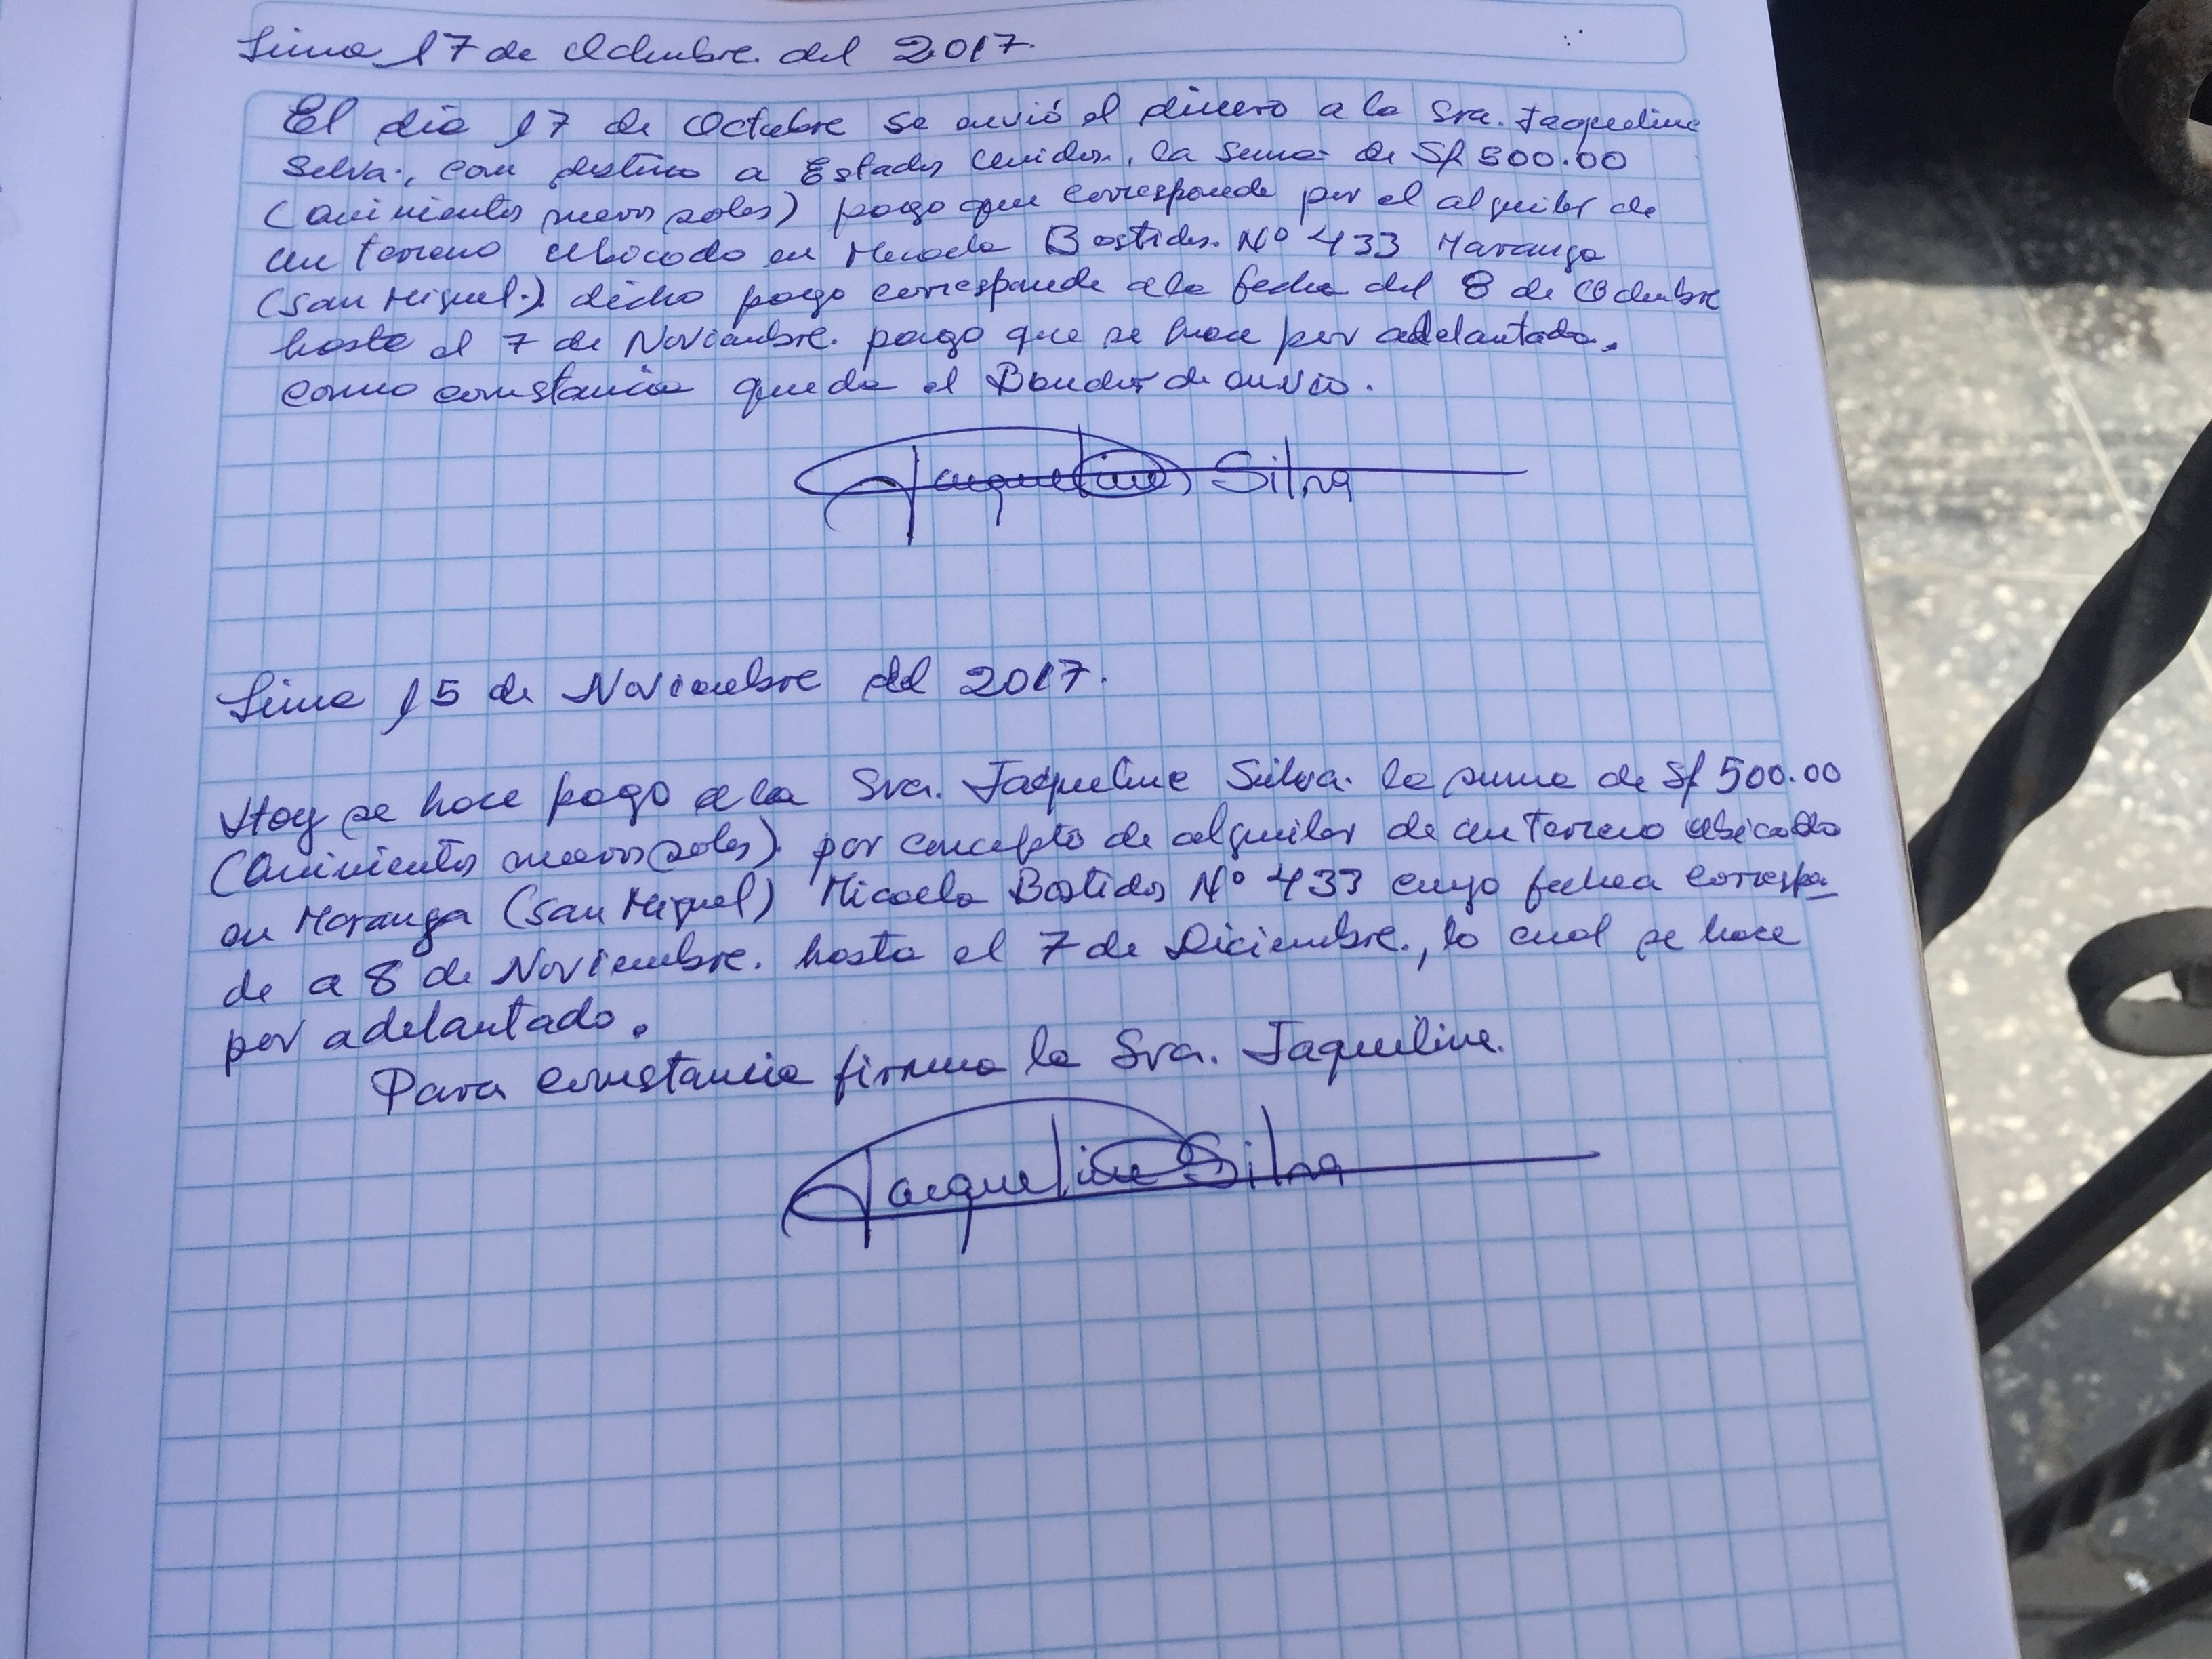 Lima 17 de Octubre. del 2017.
El dia 17 de Octubre se envió el dinero a la Sra. Jaqueline
Selva., con destino a Estados Unidos., la suma de S/ 500.00
(Quinientos nuevos soles) pago que corresponde por el alquiler de
un terreno ubicado en Micaela Bastidas. Nº 433 Maranga
(San Miguel.) dicho pago corresponde a la fecha del 8 de Octubre
hasta el 7 de Noviembre. pago que se hace por adelantado.
como constancia queda el de envio.
Jaqueline Silva
Lima 15 de Noviembre del 2017.
Hoy se hace pago a la Sra. Jaqueline Silva. la suma de S/ 500.00
(Quinientos nuevos soles). por concepto de alquiler de un terreno ubicado
en Maranga (San Miguel) Micaela Bastidas Nº 433 cuyo fecha correspon_
de a 8 de Noviembre. hasta el 7 de Diciembre., lo cual se hace
por adelantado.
Para constancia firma la Sra. Jaqueline.
Jaqueline Silva